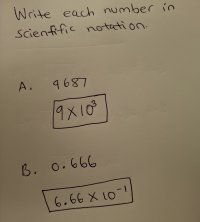 Write each number in
scientific notation.
A. 9687
9 X 10³
B. 0.666
6.66 X 10⁻¹